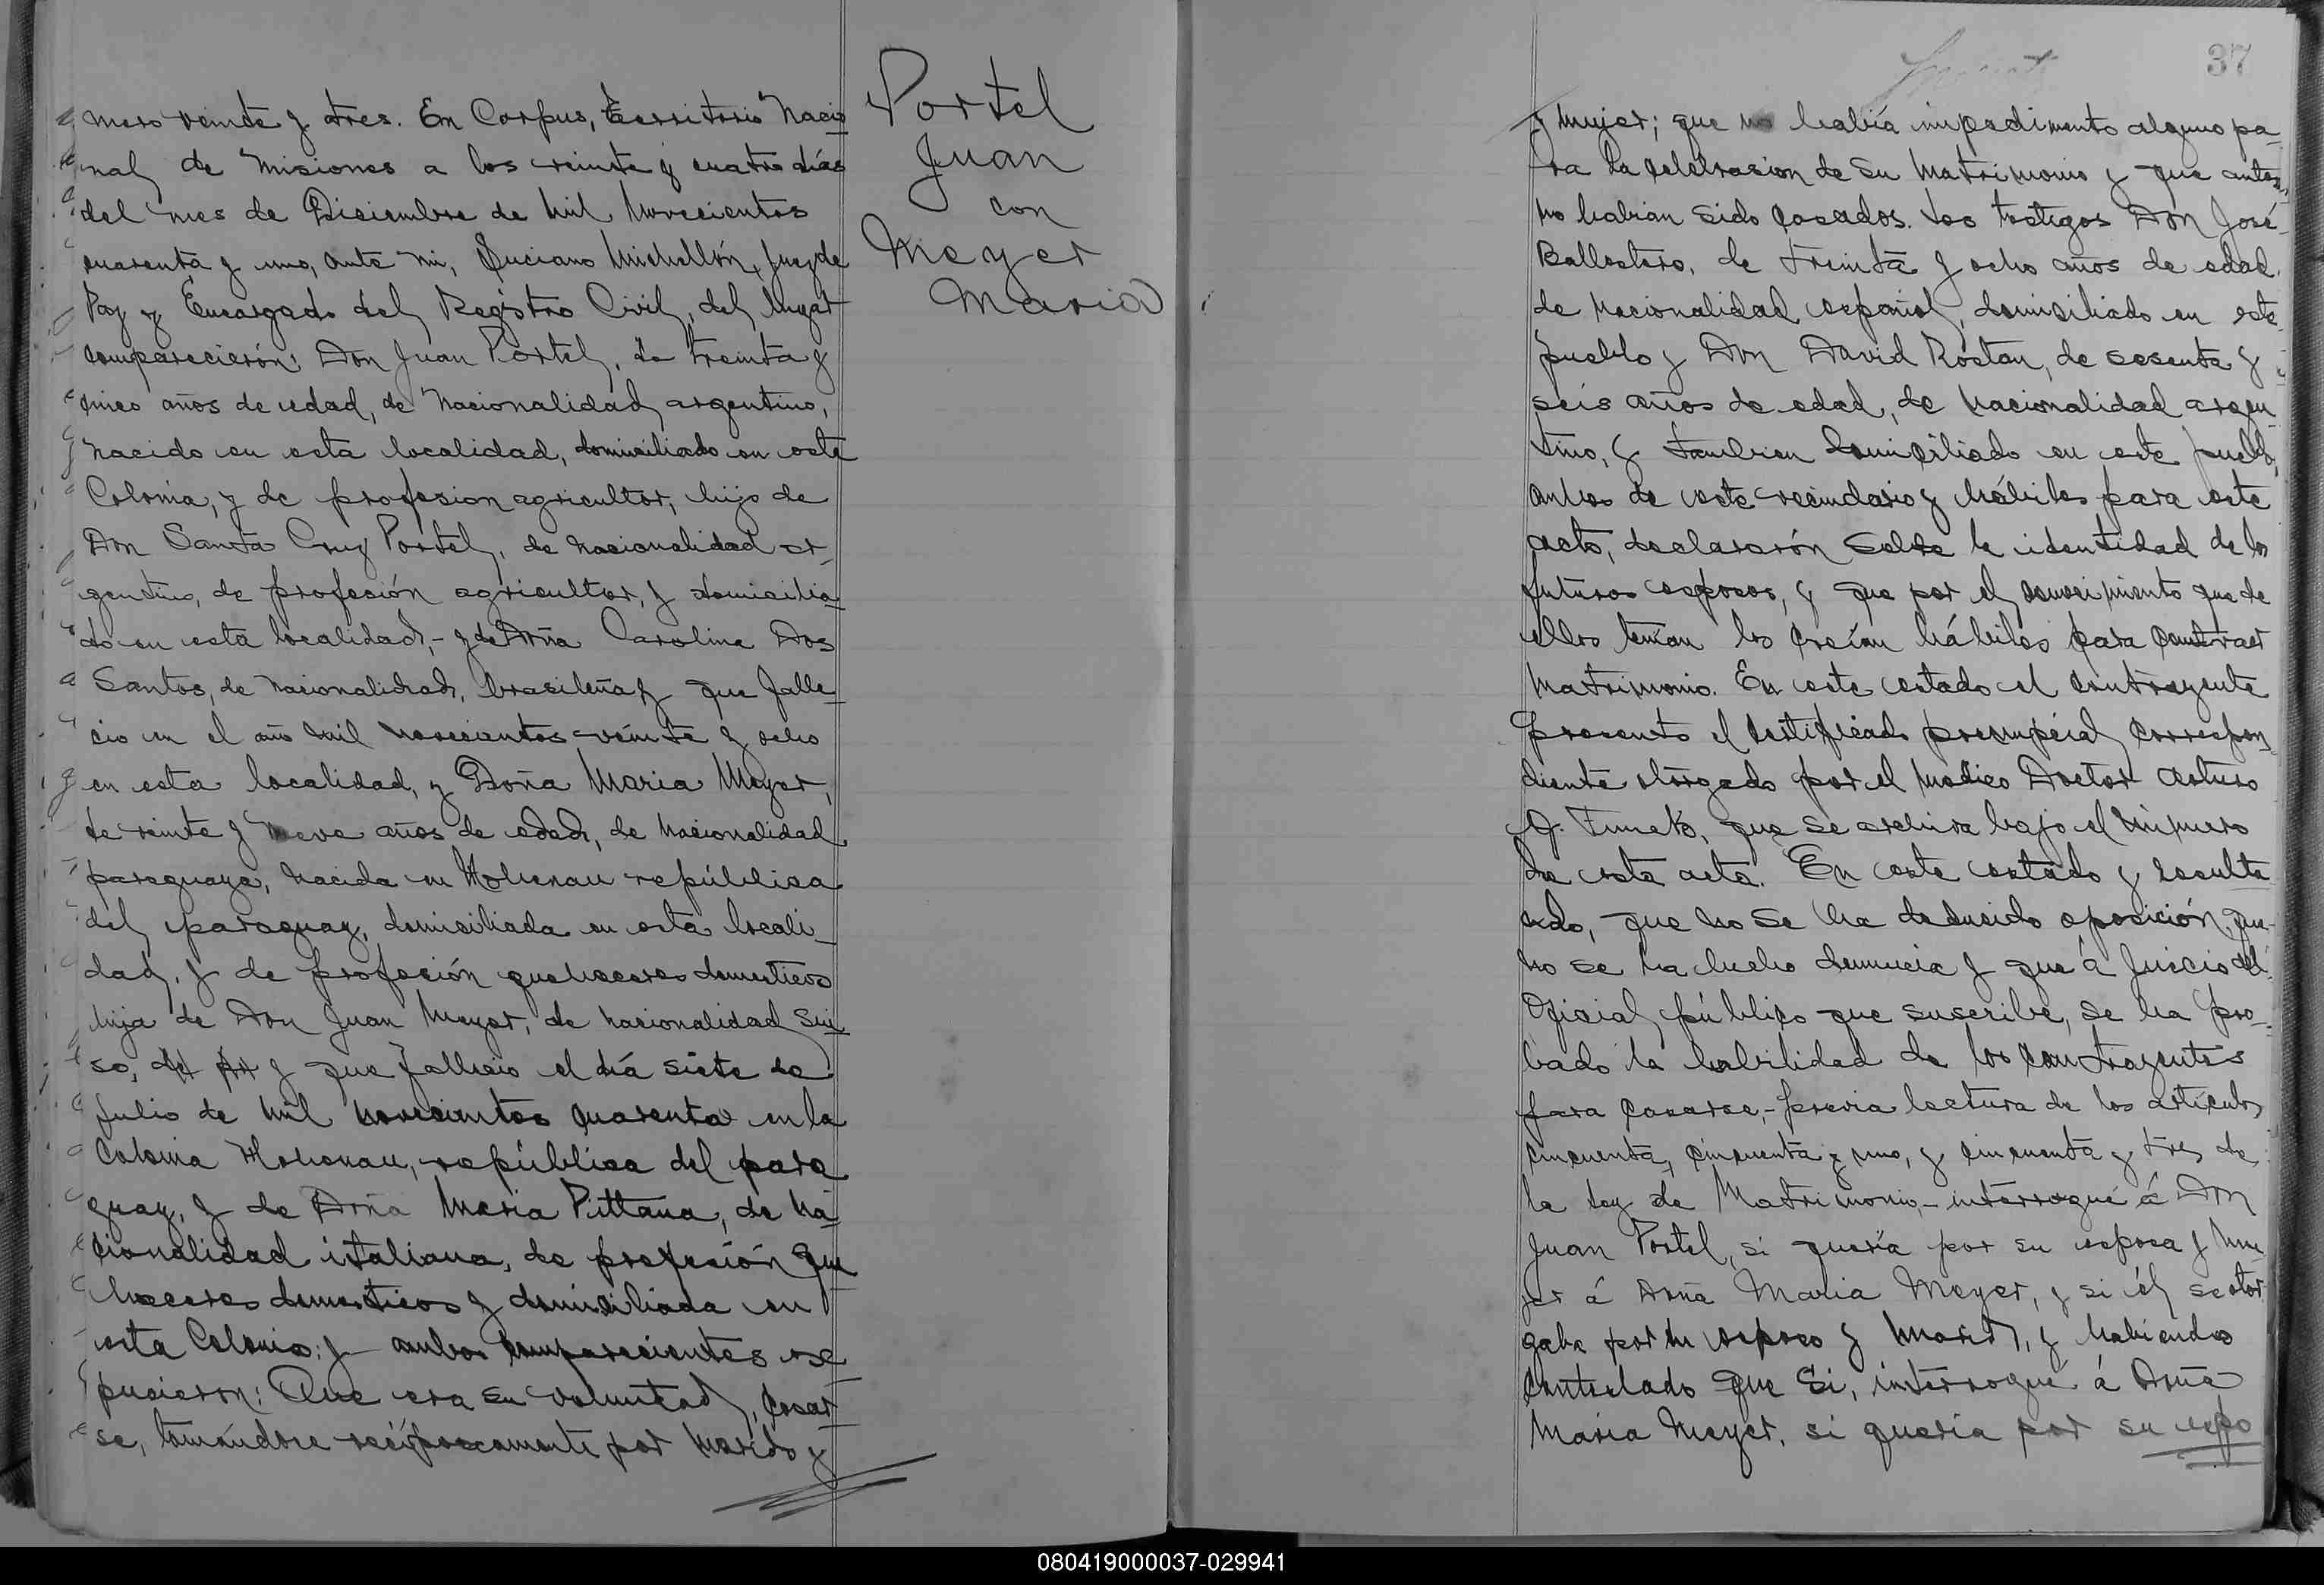 mero veinte y tres. En Corpus, territorio Nacio
nal de Misiones a los veinte y cuatro días
del mes de Diciembre de mil novecientos
cuarenta y uno, ante mi, Luciano Michellón, Juez de
Paz y Encargado del Registro Civil, del lugar
comparecierón: Don Juan Portel, de treinta y
cinco años de edad, de nacionalidad argentino,
nacido en esta localidad, domiciliado en esta
Colonia, y de profesion agricultor, hijo de
Don Santa Cruz Portel, de nacionalidad ar-
gentino, de profesión agricultor, y domicilia
do en esta localidad,- y de Doña Carolina Dos
Santos, de nacionalidad, brasileña, y que falle
cio en el año mil novecientos veinte y ocho
en esta localidad, y Doña Maria Meyer,
de veinte y nueve años de edad, de nacionalidad
paraguaya, nacida en Hohenau república
del paraguay, domiciliada en esta locali-
dad, y de profesión quehaceres domesticos
hija de Don Juan Meyer, de nacionalidad Sui
so, y que fallecio el día siete de
Julio de mil novecientos cuarenta en la
Colonia Hohenau, república del para
guay, y de Doña Maria Pittana, de na
cionalidad italiana, de profesión que
haceres domesticos y domiciliada en
esta Colonia; y ambos comparecientes ex
pusieron: Que era su voluntad, casar
se, tomándose recíprocamente por marido y
Portel
Juan
con
Meyer
Maria
37
y mujer; que no había impedimento alguno pa
ra la celebrasion de su Matrimonio y que antes
no habian sido casados. Los testigos Don José
Ballestero, de treinta y ocho años de edad,
de nacionalidad español, domiciliado en este
pueblo y Don David Rostan, de sesenta y
seis años de edad, de nacionalidad argen
tino, y tambien domiciliado en este pueblo,
ambos de este vecindario y hábiles para este
acto, declararón sobre la identidad de los
futuros esposos, y que por el conocimiento que de
ellos tenían los creían hábiles para contraer
Matrimonio. En este estado el contrayente
presento el certificado prenupcial correspon
diente otorgado por el médico Doctor Arturo
que se archiva bajo el número
de esta acta. En este estado y resulta
ndo, que no se ha deducido oposición, que
no se ha hecho denuncia y que á Juicio del
Oficial público que suscribe, se ha pro-
bado la habilidad de los contrayentes
para casarse,- previa lectura de los artículos
cincuenta, cincuenta y uno, y cincuenta y tres de
la Ley de Matrimonio,- interrogué á Don
Juan Portel, si quería por su esposa y mu
jer á Doña Maria Meyer, y si él se otor
gaba por su esposo y marido, y habiendo
contestado que Si, interrogué á Doña
Maria Meyer, si quería por su espo
080419000037-029941